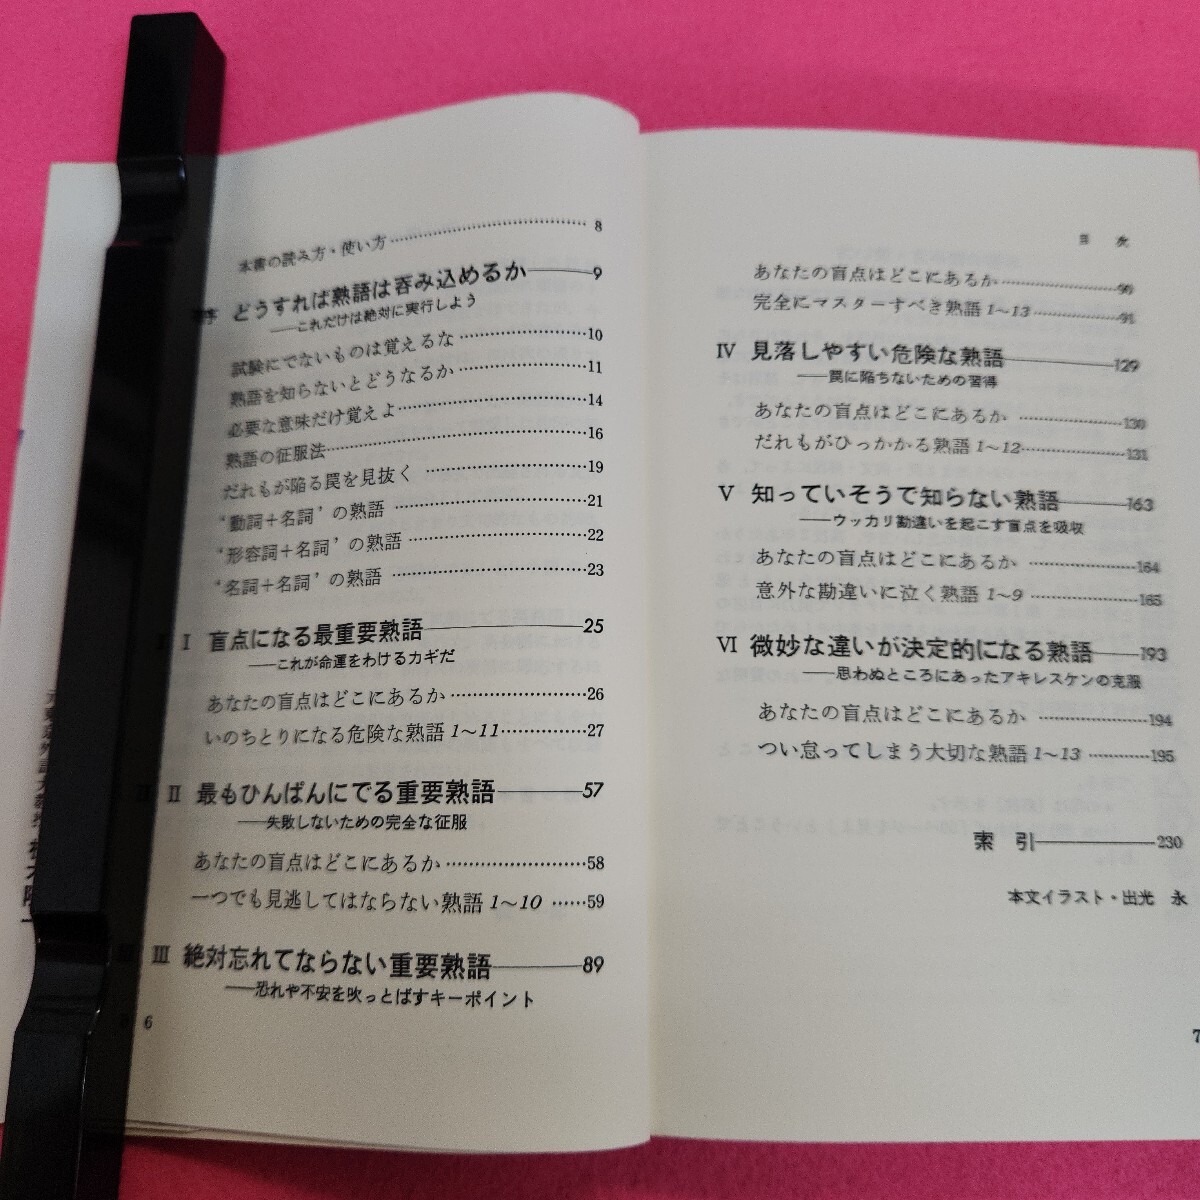 本書の読み方・使い方……8
序 どうすれば熟語は呑み込めるか――9
――これだけは絶対に実行しよう
試験にでないものは覚えるな……10
熟語を知らないとどうなるか……11
必要な意味だけ覚えよ……14
熟語の征服法……16
だれもが陥る罠を見抜く……19
“動詞＋名詞”の熟語……21
“形容詞＋名詞”の熟語……22
“名詞＋名詞”の熟語……23
Ⅰ 盲点になる最重要熟語――25
――これが命運をわけるカギだ
あなたの盲点はどこにあるか……26
いのちとりになる危険な熟語 1〜11……27
Ⅱ 最もひんぱんにでる重要熟語――57
――失敗しないための完全な征服
あなたの盲点はどこにあるか……58
一つでも見逃してはならない熟語 1〜10……59
Ⅲ 絶対忘れてならない重要熟語――89
――恐れや不安を吹っとばすキーポイント
6
目次
あなたの盲点はどこにあるか……90
完全にマスターすべき熟語 1〜13……91
Ⅳ 見落しやすい危険な熟語――129
――罠に陥ちないための習得
あなたの盲点はどこにあるか……130
だれもがひっかかる熟語 1〜12……131
Ⅴ 知っていそうで知らない熟語――163
――ウッカリ勘違いを起こす盲点を吸収
あなたの盲点はどこにあるか……164
意外な勘違いに泣く熟語 1〜9……165
Ⅵ 微妙な違いが決定的になる熟語――193
――思わぬところにあったアキレスケンの克服
あなたの盲点はどこにあるか……194
つい怠ってしまう大切な熟語 1〜13……195
索引――230
本文イラスト・出光 永
7